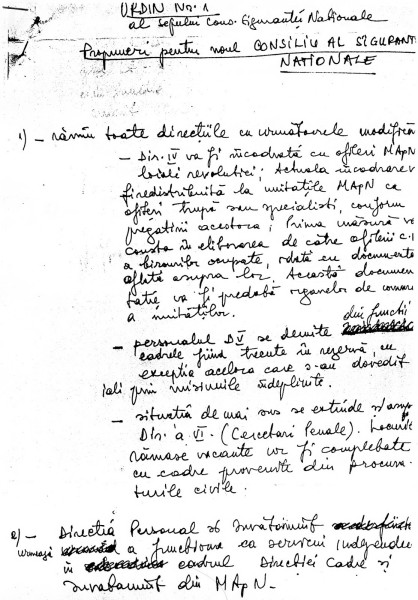 ORDIN Nr. 1
al Șefului Cons. Siguranței Naționale
Propuneri pentru noul CONSILIU AL SIGURANȚ
NAȚIONALE
1) – rămân toate direcțiile cu următoarele modifică
– Dir. IV va fi încadrată cu ofițeri MApN
loiali revoluției; Actuala încadrare v
fi redistribuită la unitățile MApN ca
ofițeri trupă sau specialiști, conform
pregătirii acestora; Prima măsură va
consta în eliberarea de către ofițerii c.i.
a birourilor ocupate, odată cu documente
aflată asupra lor. Această documen
tație va fi predată organelor de coman
a unităților.
– personalul D V se demite din funcții
cadrele fiind trecute în rezervă, cu
excepția acelora care s-au dovedit
loiali prin misiunile îndeplinite.
– situația de mai sus se extinde și asup
Dir. a VI. (Cercetări Penale). Locurile
rămase vacante vor fi completate
cu cadre provenite din procura-
turile civile.
2) – Direcția Personal și Învățămînt
urmează a funcționa ca serviciu independe
în cadrul Direcției Cadre și
Învățămînt din MApN.